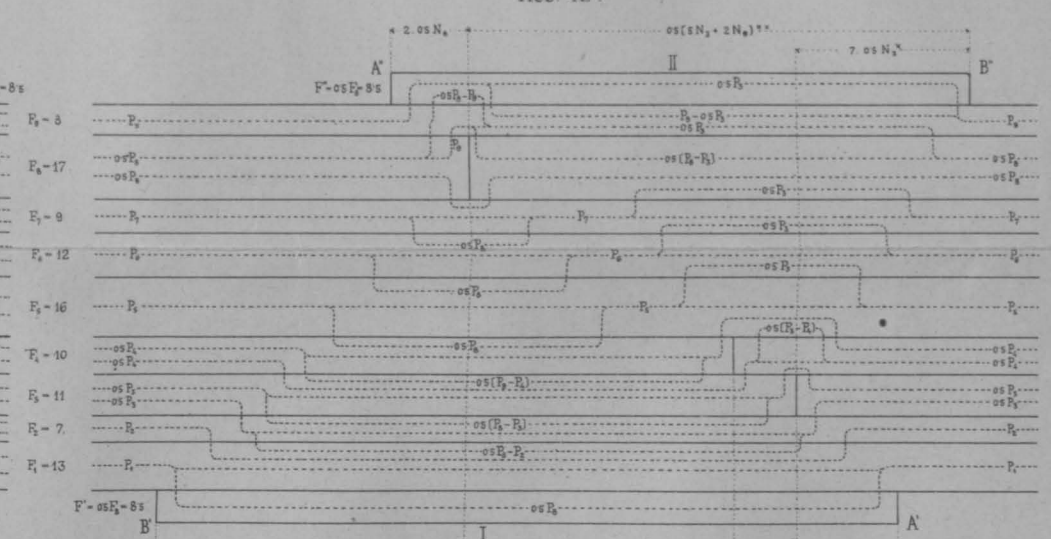 2.05 N₈ 05(8N₃+2N₈)
7.05 N₃
A" II B"
F"=05F₈=8·5 05P₃
=8·5
05P₈-P₉
F₉=8 P₉ P₈-05P₃ P₉
05P₃
P₈
F₈=17 05P₈ 05(P₈-P₃) 05P₈
05P₈ 05P₈
05P₃
F₇=9 P₇ P₇ P₇
05P₈ 05P₃
F₆=12 P₆ P₆ P₆
05P₈ 05P₃
F₅=16 P₅ P₅ P₅
05P₈ 05(P₃-P₄)
F₄=10 05P₄ 05P₄
05P₄ 05P₄
05(P₈-P₄)
F₃=11 05P₃ 05P₃
05P₃ 05P₃
05(P₈-P₃)
F₂=7 P₂ P₂
05P₈-P₂
F₁=13 P₁ P₁
F'=05F₈=8·5 05P₈
B' I A'